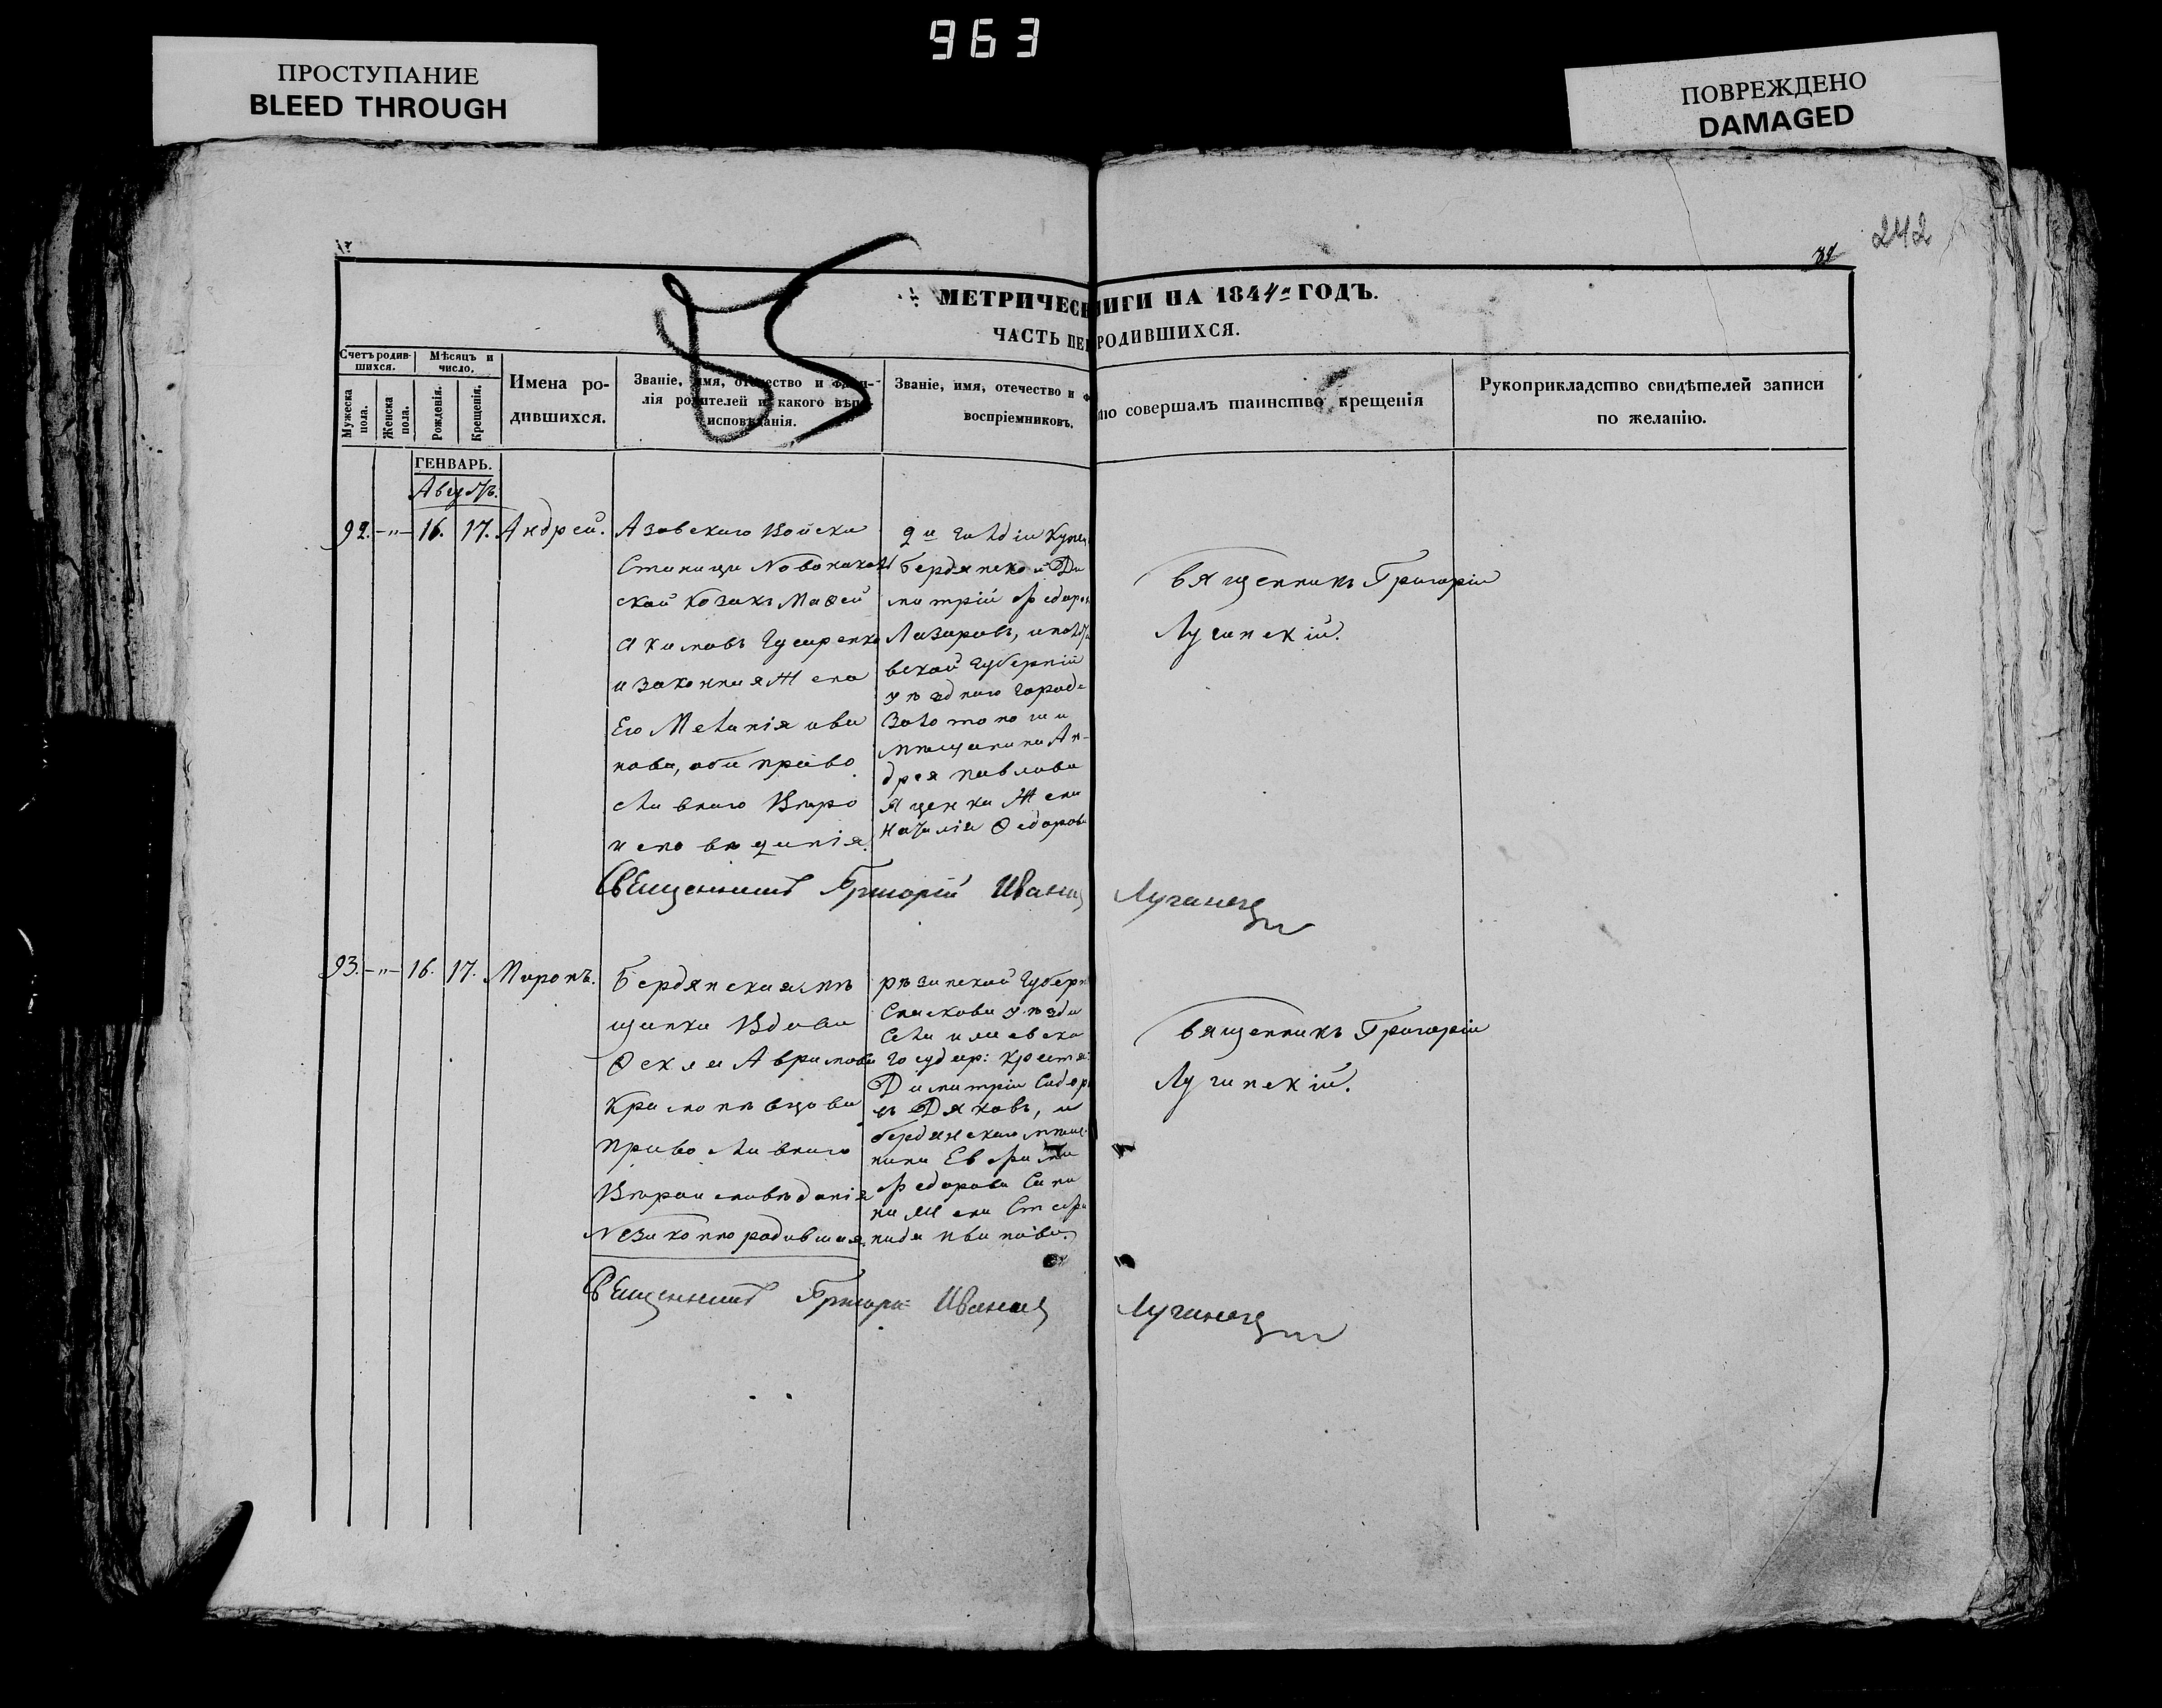 963
ПРОСТУПАНИЕ
BLEED THROUGH
ПОВРЕЖДЕНО
DAMAGED
242
МЕТРИЧЕС НИГИ НА 1844 ГОДЪ.
ЧАСТЬ ПЕР РОДИВШИХСЯ.
Счетъ родив-
шихся.
Мѣсяцъ и
число.
Мужеска
пола.
Женска
пола.
Рожденія.
Крещенія.
Имена ро-
дившихся.
Званіе, имя, отечество и фами-
лія родителей и какого вѣро-
исповѣданія.
Званіе, имя, отечество и ф
воспріемниковъ.
то совершалъ таинство крещенія
Рукоприкладство свидѣтелей записи
по желанію.
ГЕНВАРЬ.
Августъ.
92. -"- 16. 17. Андрей.
Азовскаго Войска
Станицы Новоспасов
ской Козакъ
Гусаренко
и законная Жена
Его Меланія Ива
нова, оба право
славнаго Вѣро
исповѣданія.
2й гильдіи Купец
Бердянской Ди
митрій Федоро
Лазаровъ, и полта
вской Губерніи
уѣзднаго города
Золотоноши
мѣщанина Ан-
дрея Павлова
Яценка Жена
Наталія Федорова
Священникъ Григорій
Лугинскій.
Священникъ Григорій Иванов Лугинскій
93. -"- 16. 17. Миронъ.
Бердянская мѣ
щанка Вдова
Фекла Аврамова
православнаго
Вѣроисповѣданія
Незаконнородившая
рѣзанской Губерн
Спаскова уѣзда
Села
Государ: Крестя:
Димитрій Сидор
Дяковъ, и
бердянскаго мѣщ
нина
Федорова
Жена Стефа
нида Иванова.
Священникъ Григорій
Лугинскій.
Священникъ Григорій Иванов Лугинскій